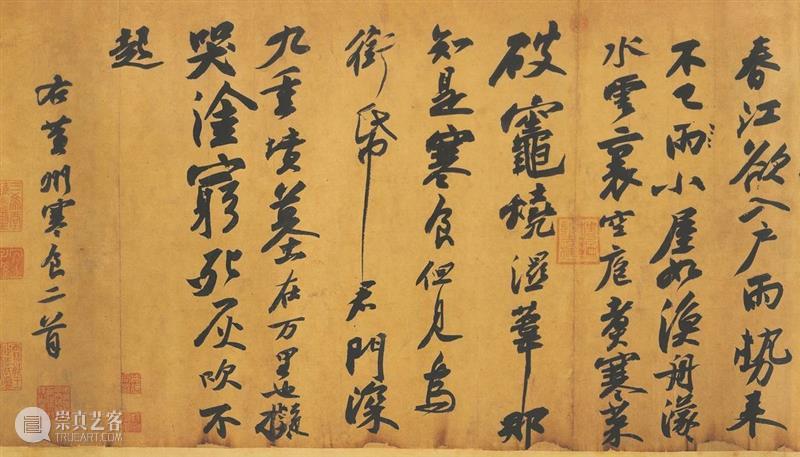 春江欲入戶雨勢來
不已雨小屋如漁舟濛〻
水雲裏空庖煮寒菜
破竈燒濕葦那
知是寒食但見烏
銜帋君門深
九重墳墓在万里也擬
哭塗窮死灰吹不
起
右黃州寒食二首
崇真艺客
TRUEART.COM